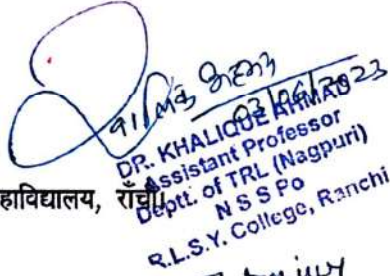 03/06/2023
DR. KHALIQUE AHMAD
Assistant Professor
Deptt. of TRL (Nagpuri)
N S S P o
R.L.S.Y. College, Ranchi
हाविद्यालय, राँची।